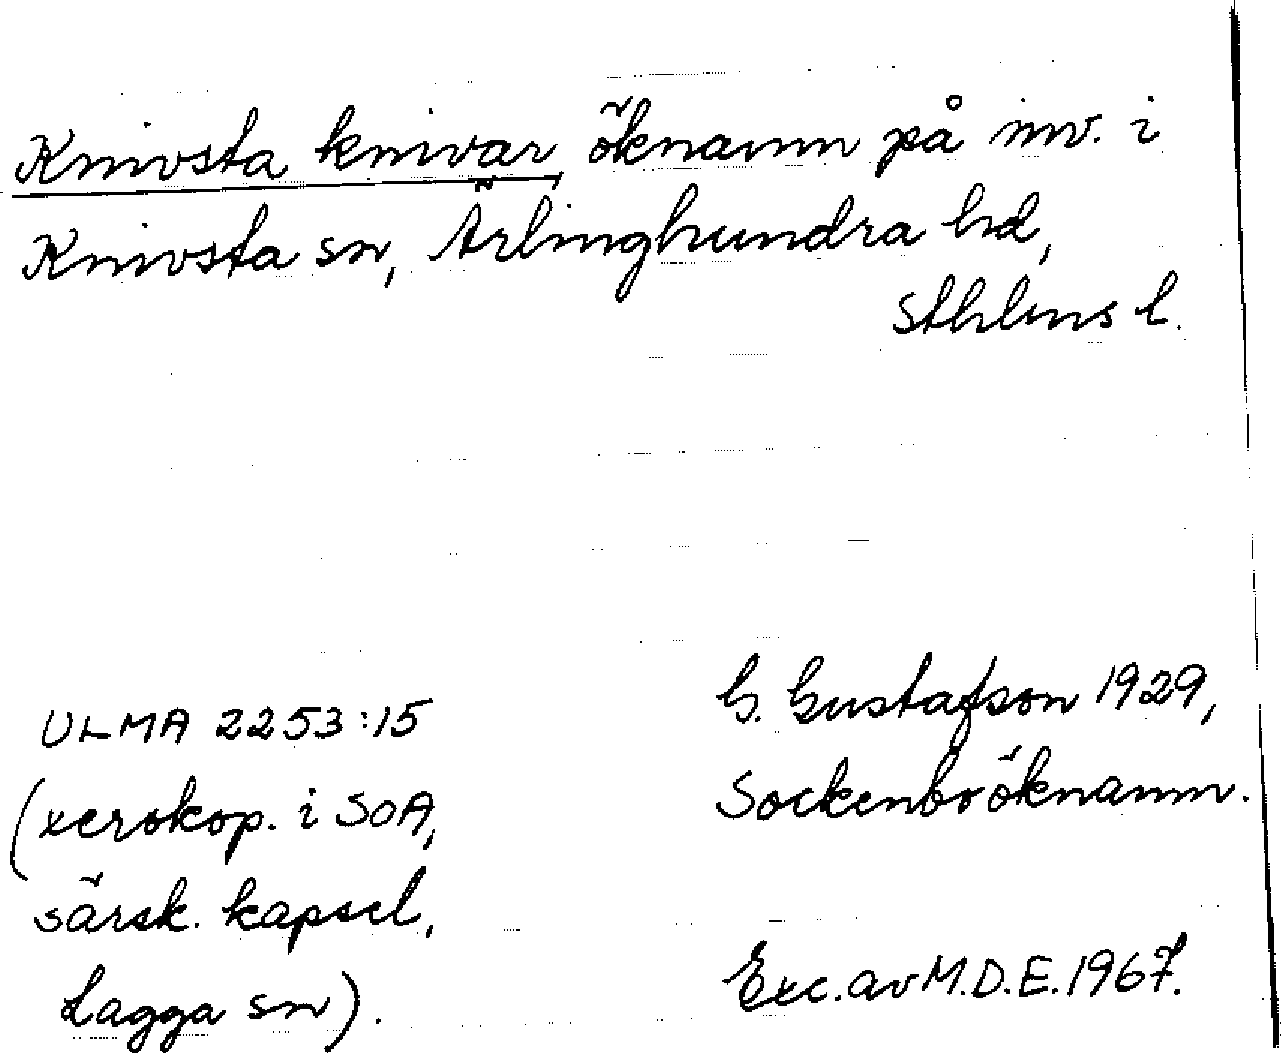 Knivsta knivar, öknamn på inv. i
Knivsta sn, Ärlinghundra hd,
Sthlms l.
ULMA 2253:15
(xerokop. i SOA,
särsk. kapsel,
Lagga sn).
G. Gustafson 1929,
Sockenboöknamn.
Exc. av M.D.E. 1967.